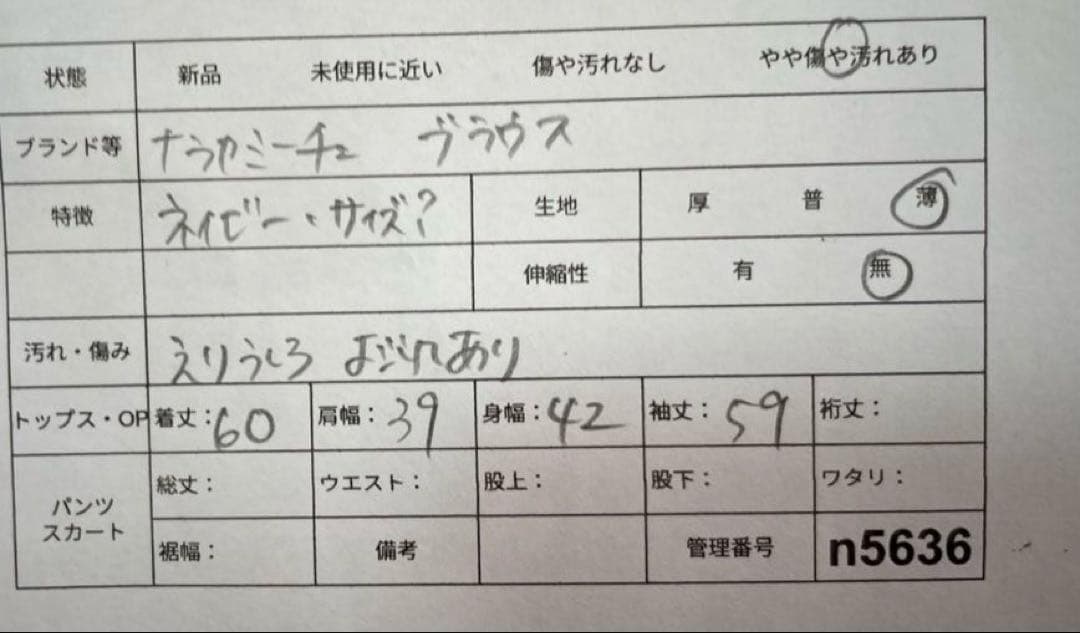 状態 新品 未使用に近い 傷や汚れなし やや傷や汚れあり
ブランド等 ナラカミーチェ ブラウス
特徴 ネイビー・サイズ? 生地 厚 普 薄
伸縮性 有 無
汚れ・傷み えりうしろ よごれあり
トップス・OP 着丈:60 肩幅:39 身幅:42 袖丈:59 裄丈:
パンツ
スカート
総丈: ウエスト: 股上: 股下: ワタリ:
裾幅: 備考 管理番号 n5636